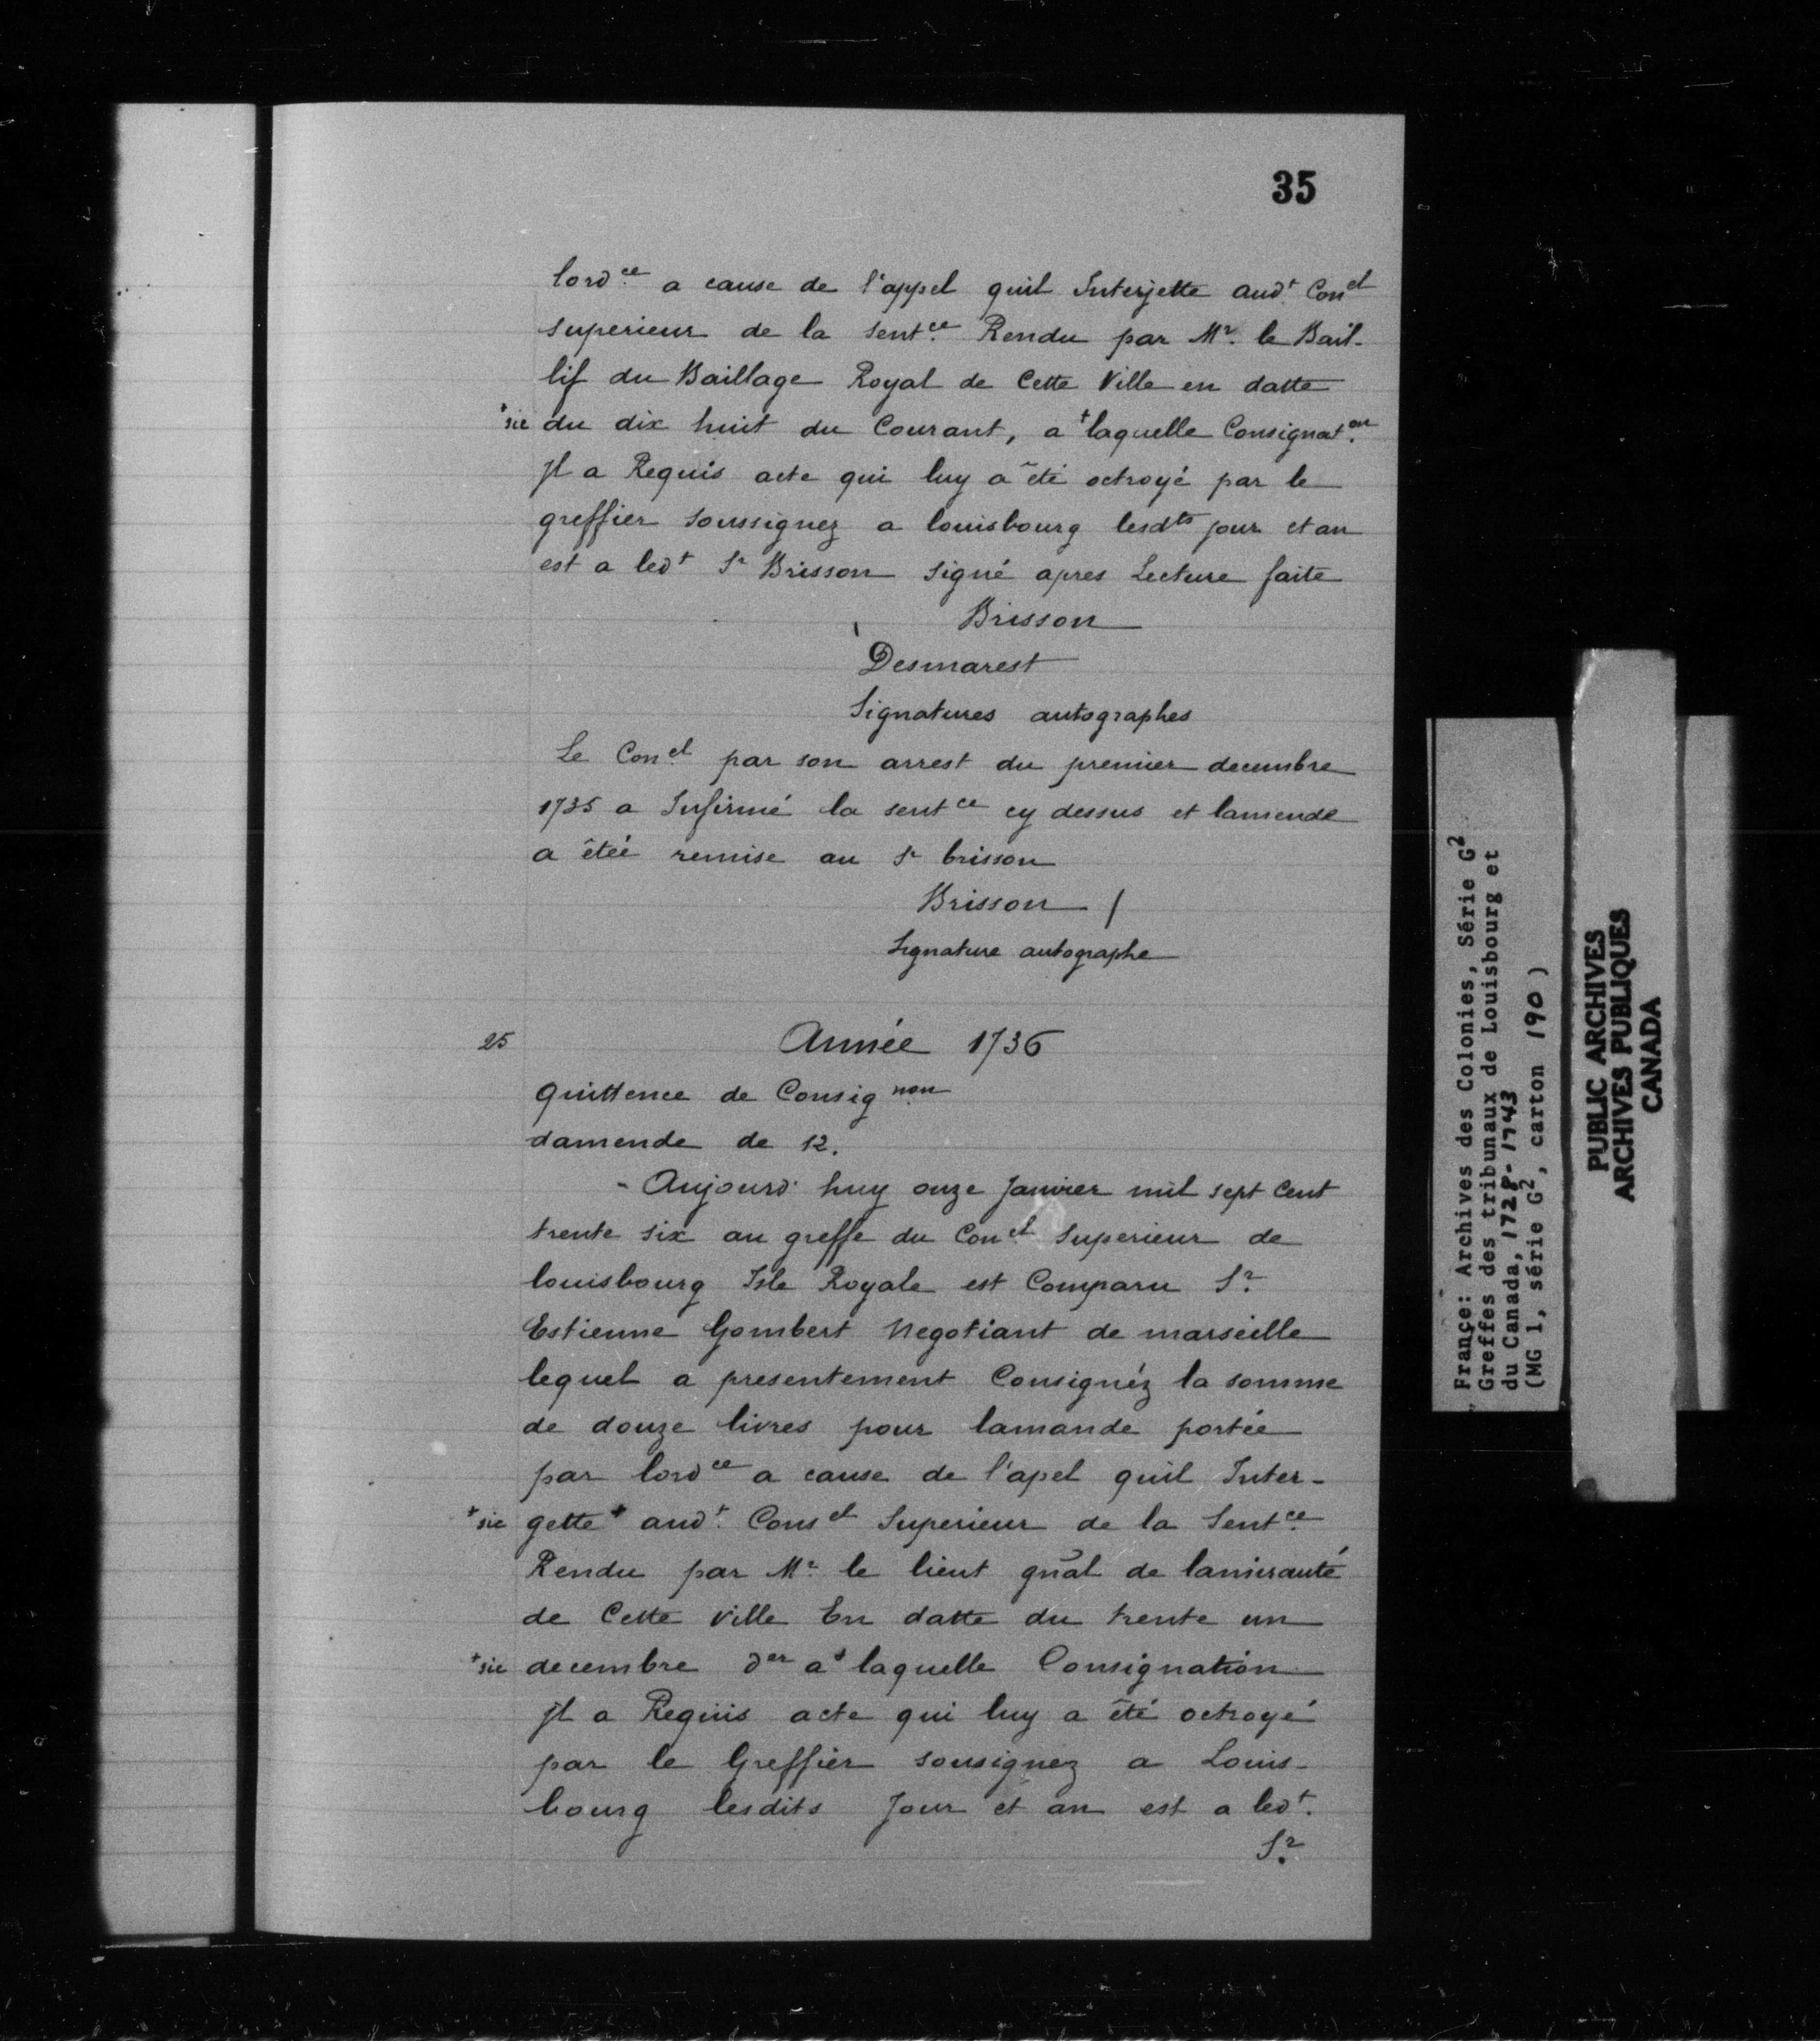 35
lordce a cause de l'appel quil Interjette audt Conel
superieur de la sentce Rendu par Mr. le Bail-
lif du Baillage Royal de Cette Ville en datte
+sic du dix huit du Courant, a + laquelle Consignaton
Jl a Requis acte qui luy a êté octroyé par le
greffier soussignez a louisbourg lesdts jour et an
est a ledt Sr Brisson signé apres Lecture faite
Brisson
Desmarest
Signatures autographes
Le Conel par son arrest du premier decembre
1735 a Infirmé la sentce cy dessus et lamende
a êtéé remise au Sr brisson
Brisson /
Signature autographe
25 Année 1736
quittence de Consignon
damende de 12.
- Aujourd huy onze Janvier mil sept Cent
trente six au greffe du Conel Superieur de
louisbourg Isle Royale est Comparu Sr.
Estienne Gombert Negotiant de marseille
lequel a presentement Consignéz la somme
de douze livres pour lamande portée
par lordce a cause de l'apel quil Inter-
+sic gette + audt. Consel Superieur de la Sentce
Rendu par Mr. le lieut gnāl de lamirauté
de Cette Ville En datte du trente un
+sic decembre der a + laquelle Consignation
Jl a Requis acte qui luy a êté octroyé
par le Greffier sousignez a Louis-
bourg lesdits Jour et an est a ledt.
Sr.
France: Archives des Colonies, Série G2
Greffes des tribunaux de Louisbourg et
du Canada, 1728-1743
(MG 1, série G2, carton 190)
PUBLIC ARCHIVES
ARCHIVES PUBLIQUES
CANADA